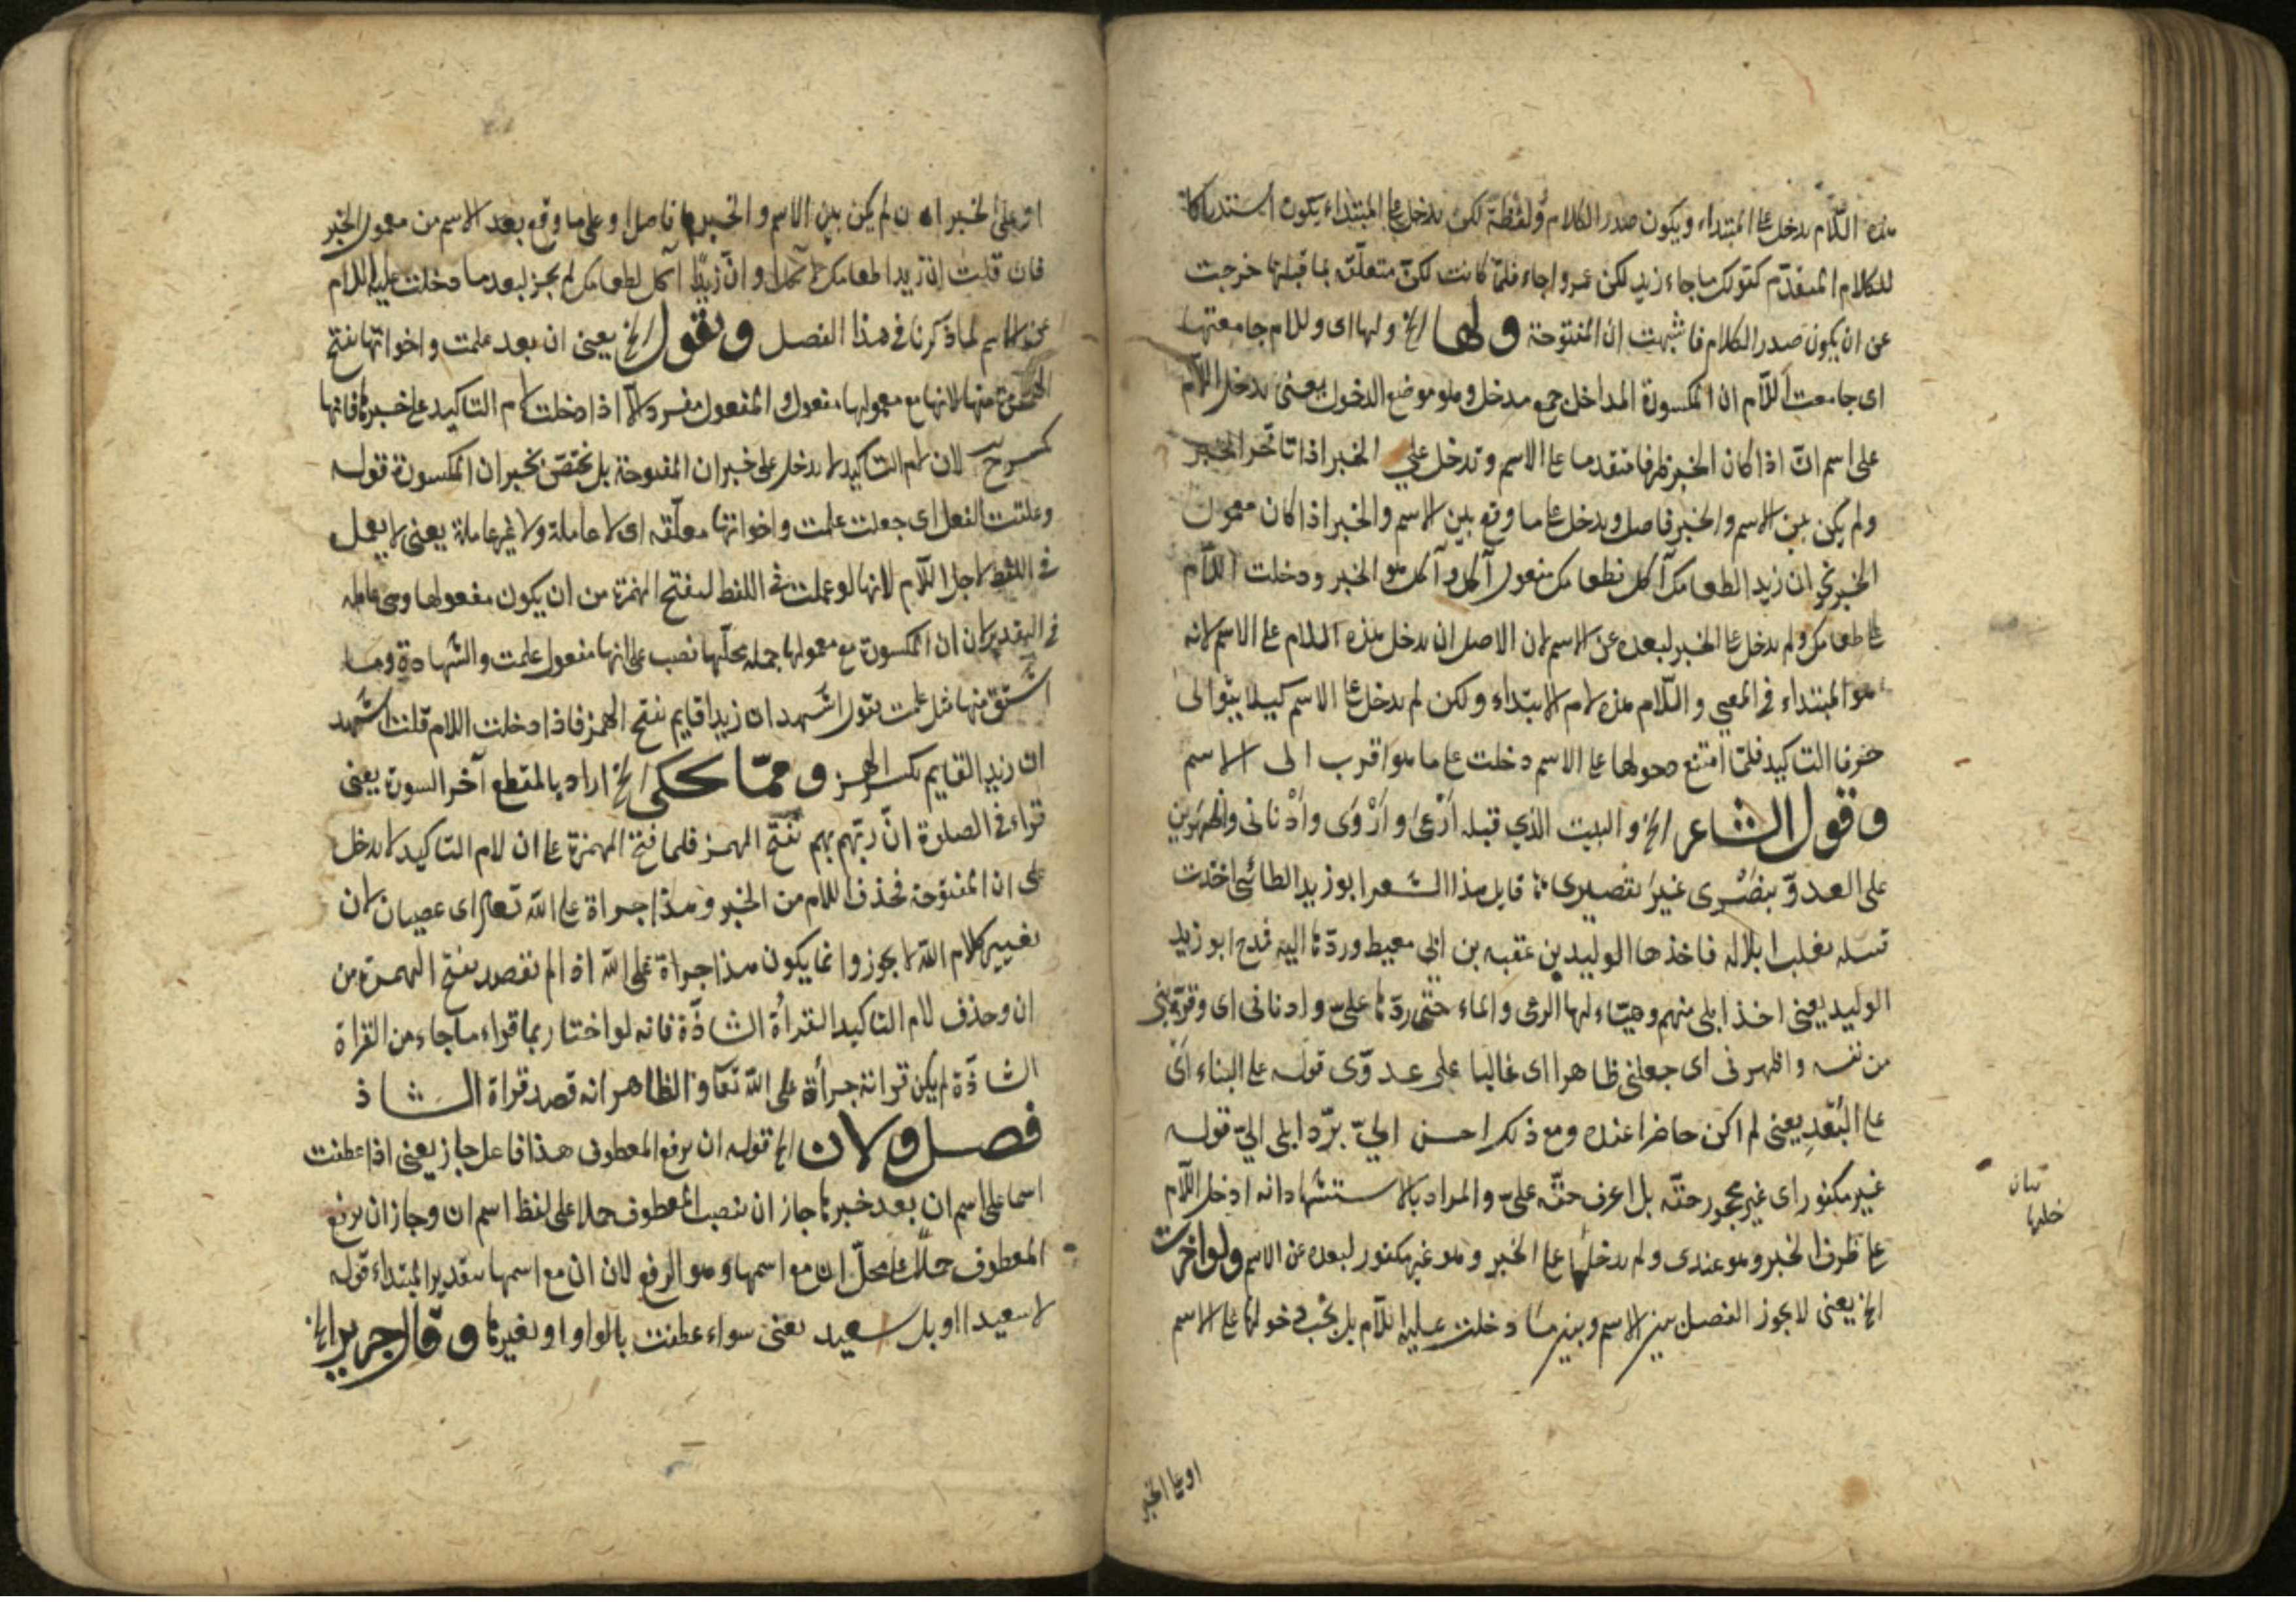 هذه اللّام يدخل على المبتداء ويكون صدر الكلام ولفظة لكن يدخل على المبتداء يكون استدراكا
للكلام المتقدّم كقولك ما جاء زيد لكن عمروا جاء فلمّا كانت لكنّ متعلّقة بما قبلها خرجت
عن ان يكون صدر الكلام فاشبهت ان المفتوحة ولها الخ ولها اى وللام جامعتها
اى جامعت اللّام ان المكسورة المداخل جمع مدخل وهو موضع الدخول يعنى يدخل اللّام
على اسم انّ اذا كان الخبر ظرفا متقدما على الاسم وتدخل على الخبر اذا تاخّر الخبر
ولم يكن بين الاسم والخبر فاصل ويدخل على ما وقع بين الاسم والخبر اذا كان معمول
الخبر نحو ان زيد الطعامك آكل فطعامك مفعول آكل وآكل هو الخبر ودخلت اللّام
على طعامك ولم يدخل على الخبر لبعده عن الاسم لان الاصل ان يدخل هذه اللام على الاسم لانه
هو المبتداء فى المعنى واللّام هذه لام الابتداء ولكن لم يدخل على الاسم كيلا يتوالى
حرفا التاكيد فلمّا امتنع دخولها على الاسم دخلت على ما هو اقرب الى الاسم
وقول الشاعر الخ والبيت الذي قبله اَرْعَى وَارْوَى وادْنانى واظهرنى
على العدوّ بنَصْرى غيرَ تقصيرى قايل هذا الشعر ابو زيد الطائى اخذت
تغلب ابلا له فاخذها الوليد بن عقبه بن ابى معيط وردّها اليه فمدح ابو زيد
الوليد يعنى اخذ ابلى منهم وهيّاء لها الرعى والماء حتّى ردّها علىّ وادنانى اى وقرّبنى
من نفسه واظهرنى اى جعلنى ظاهرا اى غالبا على عدوّى قوله على البناء اى
على البُعْدِ يعنى لم اكن حاضرا عنده ومع ذلك احسن الىّ بردّ ابلى الىّ قوله
غير مكفور اى غير مجحور حقّه بل اعرف حقّه علىّ والمراد بالاستشهاد انه ادخل اللّام
على ظرف الخبر وهو عندى ولم يدخلها على الخبر وهو غير مكفور لبعده عن الاسم ولو اخرت
الخ يعنى لا يجوز الفصل بين الاسم وبين ما دخلت عليه اللّام بل يجب دخولها على الاسم
او على الخبر
او على الخبر ان لم يكن بين الاسم والخبر فاصل او على ما وقع بعد الاسم من معمول الخبر
فان قلت ان زيدا طعامك لآكل وانّ زيدًا آكل لطعامك لم يجز لبعد ما دخلت عليه اللام
عن الاسم لما ذكرنا فى هذا الفصل وتقول الخ يعنى ان بعد علمت واخواتها تفتح
الهمزة منها لانها مع معمولها مفعول والمفعول مفرد الّا اذا دخلت لام التاكيد على خبرها فانها
لان لام التاكيد لا يدخل على خبر ان المفتوحة بل يختصّ بخبر ان المكسورة قوله
وعلقت الفعل اى جعلت علمت واخواتها معلّقه اى لا عاملة ولا غير عاملة يعنى لا يعمل
فى اللفظ لاجل اللّام لانها لو عملت فى اللفظ لتفتح الهمزة من ان يكون مفعولها وهى عامله
فى التقدير لان ان المكسورة مع معمولها جمله محلّها نصب على انها مفعول علمت والشهادة وما
اشتق منها مثل علمت تقول اشهد ان زيدا قايم بفتح الهمز فاذا دخلت اللام قلت اشهد
ان زيد القايم بكسر الهمز وممّا يحكى الخ اراد بالمقطع آخر السورة يعنى
قراء فى الصلوة انّ ربّهم بهم بفتح الهمز فلما فتح الهمزة على ان لام التاكيد لا يدخل
على ان المفتوحة فحذف اللام من الخبر وهذا جراة على الله تعالى اى عصيان لان
تغيير كلام الله لا يجوز وانما يكون هذا جراة على الله اذا لم تقصد بفتح الهمزة من
ان وحذف لام التاكيد القرأة الشاذّة فانه لو اختار بما قراء ما جاء من القراة
الشاذّة لم يكن قراته جرأة على الله تعا والظاهر انه قصد قراة الشاذ
فصل ولان الخ قوله ان يرفع المعطوف هذا فاعل جاز يعنى اذا عطفت
اسما على اسم ان بعد خبرها جاز ان تنصب المعطوف حملا على لفظ اسم ان وجاز ان يرفع
المعطوف حملا على محلّ ان مع اسمها وهو الرفع لان ان مع اسمها بتقدير المبتداء قوله
لا سعيدا او بل سعيد يعنى سواء عطفت بالواو او بغيرها وقال جرير الخ